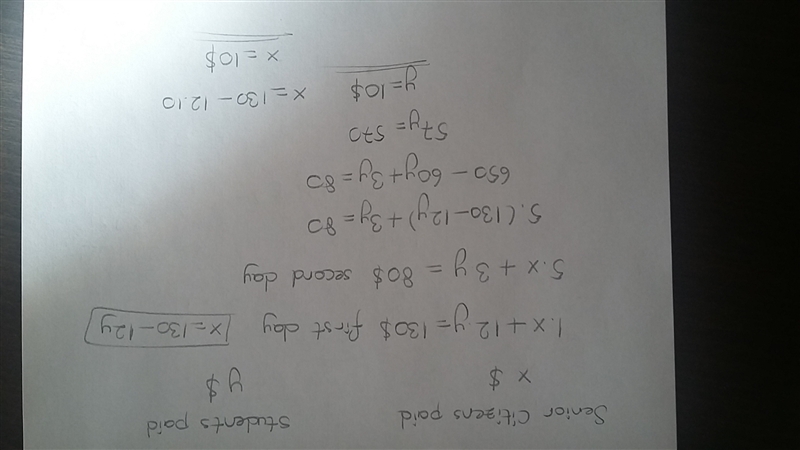 Senior Citizens paid Students paid
x $ y $
1.x + 12.y = 130$ first day x=130-12y
5.x + 3y = 80$ second day
5.(130-12y) + 3y = 80
650 - 60y + 3y = 80
57y = 570
y=10$ x = 130 - 12.10
x = 10$